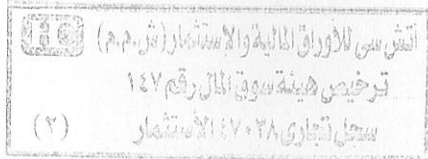 اتش سى للاوراق المالية والاستثمار (ش.م.م)
ترخيص هيئة سوق المال رقم ١٤٧
سجل تجارى ٤٧٠٣٨ الأستثمار
(٢)